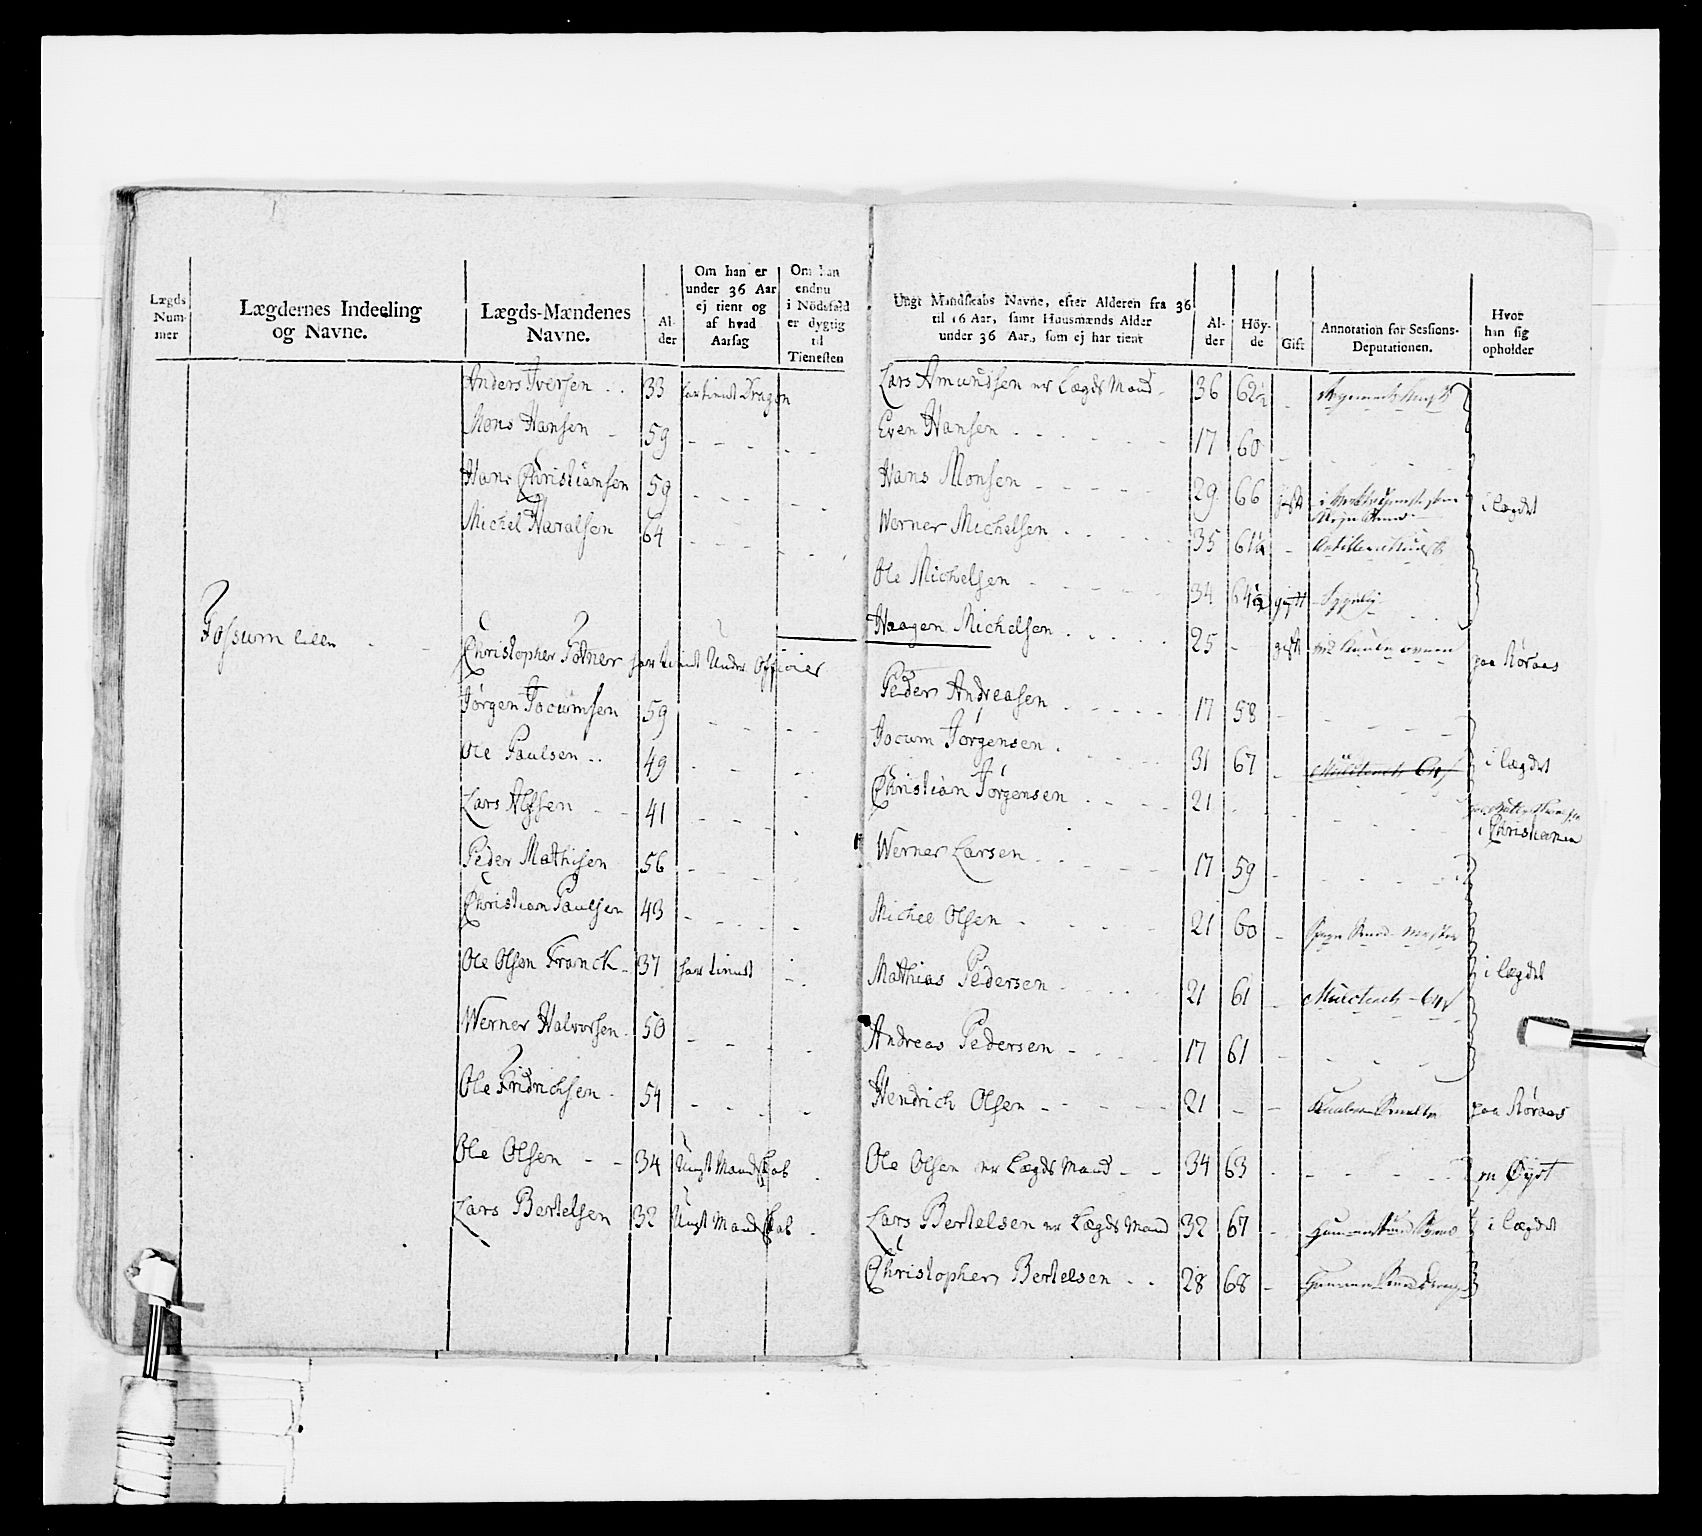 Lægds Num- mer
Lægdernes Indeeling og Navne.
Lægds-Mændenes Navne.
Al- der
Om han er under 36 Aar ej tient og af hvad Aarsag
Om han endnu i Nödsfald er dygtig til Tienesten
Ungt Mandskabs Navne, efter Alderen fra 36 til 16 Aar, samt Huusmænds Alder under 36 Aar, som ej har tient
Al- der
Höy- de
Gift
Annotation for Sessions- Deputationen.
Hvor han sig opholder
Anders Iversen 33 har tient Dragon
Mons Hansen 59
Hans Christiansen 59
Michel Haralsen 64
Fossum lille
Christopher har tient Under Officier
Jørgen Jocumsen 59
Ole Paulsen 49
Lars 41
Peder Mathisen 56
Christian Paulsen 43
Ole Olsen Franck 37 har tient
Werner Halvorsen 50
Ole Fridrichsen 54
Ole Olsen 34 Ungt Mandskab
Lars Bertelsen 32 Ungt Mandskab
Lars Amundsen er Lægds Mand 36 62½
Even Hansen 17 60
Hans Monsen 29 66 gift i lægdet
Werner Michelsen 35 61½
Ole Michelsen 34 64½ gift
Haagen Michelsen 25 gift paa Røraas
Peder Andreasen 17 58
Jocum Jørgensen 31 67 i lægdet
Christian Jørgensen 21 i Christiania
Werner Larsen 17 59
Michel Olsen 21 60
Mathias Pedersen 21 61 i lægdet
Andreas Pedersen 17 61
Hendrich Olsen 21 paa Røraas
Ole Olsen er Lægds Mand 34 63
Lars Bertelsen er Lægds Mand 32 67 i lægdet
Christopher Bertelsen 28 68